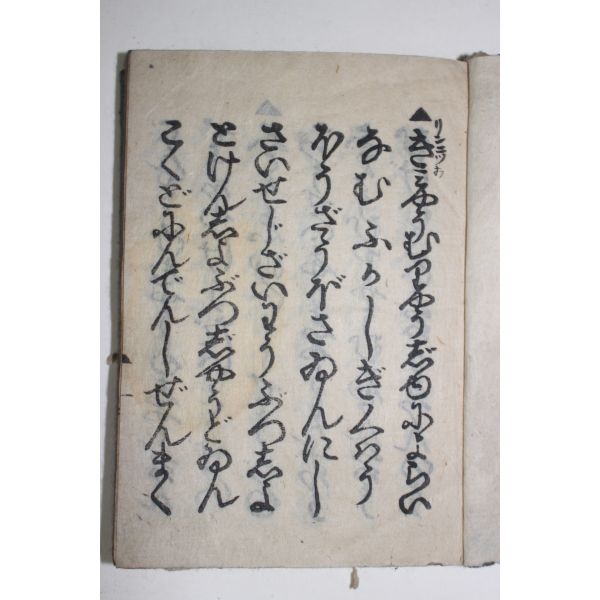 ▲きミやうむりやうじゆによらい
リン二ツ
なむふかしぎくハう
ほうざうぼさゐんにし
さいせじざいわうぶつしよ
とけんしよぶつじやうどゐん
こくどにんでんしぜんまく